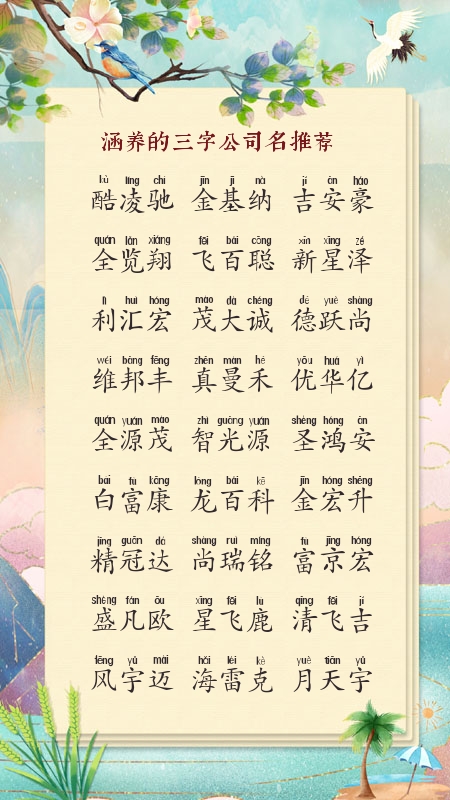 涵养的三字公司名推荐
kù líng chí jīn jī nà jí ān háo
酷凌驰 金基纳 吉安豪
quán lǎn xiáng fēi bǎi cōng xīn xīng zé
全览翔 飞百聪 新星泽
lì huì hóng mào dà chéng dé yuè shàng
利汇宏 茂大诚 德跃尚
wéi bāng fēng zhēn màn hé yōu huá yì
维邦丰 真曼禾 优华亿
quán yuán mào zhì guāng yuán shèng hóng ān
全源茂 智光源 圣鸿安
bái fù kāng lóng bǎi kē jīn hóng shēng
白富康 龙百科 金宏升
jīng guān dá shàng ruì míng fù jīng hóng
精冠达 尚瑞铭 富京宏
shèng fán ōu xīng fēi lù qīng fēi jí
盛凡欧 星飞鹿 清飞吉
fēng yǔ mài hǎi léi kè yuè tiān yǔ
风宇迈 海雷克 月天宇